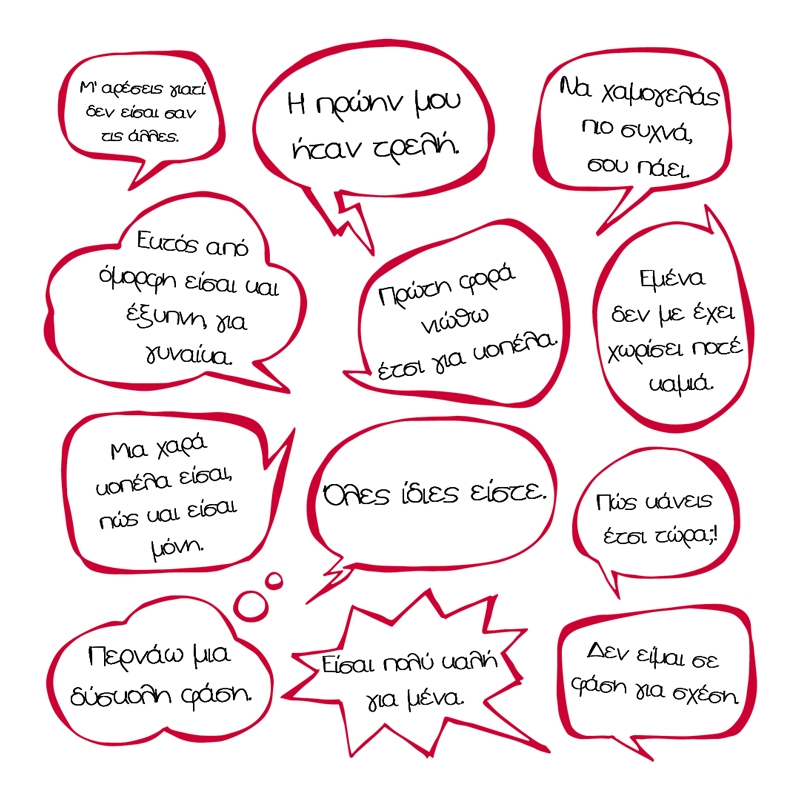 Μ' αρέσεις γιατί
δεν είσαι σαν
τις άλλες.
Η πρώην μου
ήταν τρελή.
Να χαμογελάς
πιο συχνά,
σου πάει.
Εκτός από
όμορφη είσαι και
έξυπνη, για
γυναίκα.
Πρώτη φορά
νιώθω
έτσι για κοπέλα.
Εμένα
δεν με έχει
χωρίσει ποτέ
καμιά.
Μια χαρά
κοπέλα είσαι,
πώς και είσαι
μόνη.
Όλες ίδιες είστε.
Πώς κάνεις
έτσι τώρα;!
Περνάω μια
δύσκολη φάση.
Είσαι πολύ καλή
για μένα.
Δεν είμαι σε
φάση για σχέση.